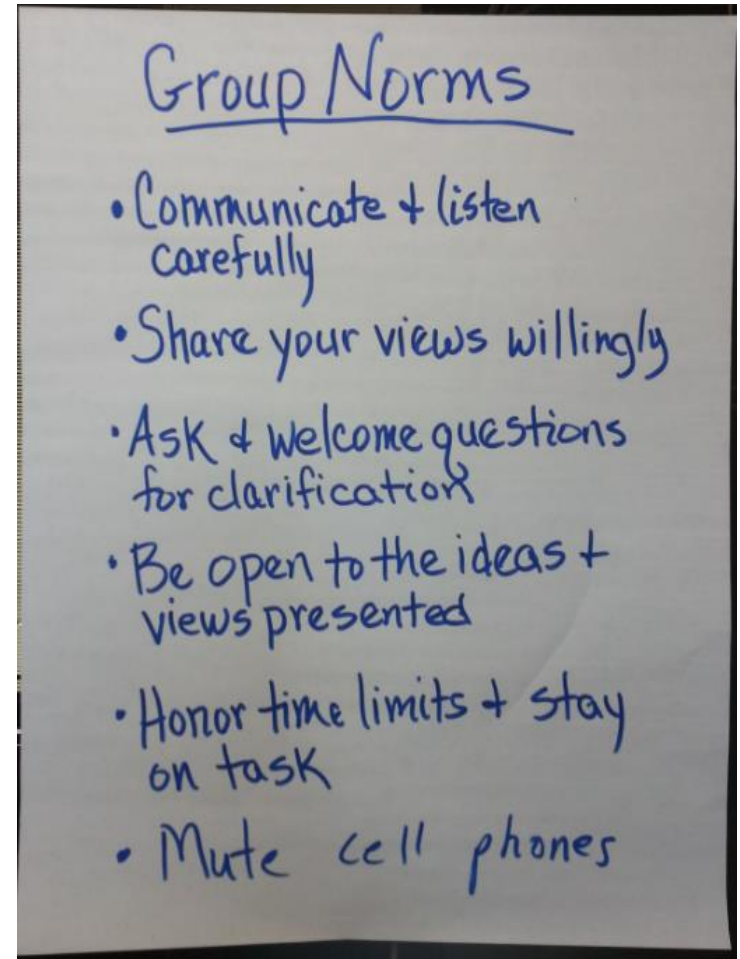 Group Norms
• Communicate + listen
carefully
• Share your views willingly
• Ask & welcome questions
for clarification
• Be open to the ideas +
views presented
• Honor time limits + stay
on task
• Mute cell phones